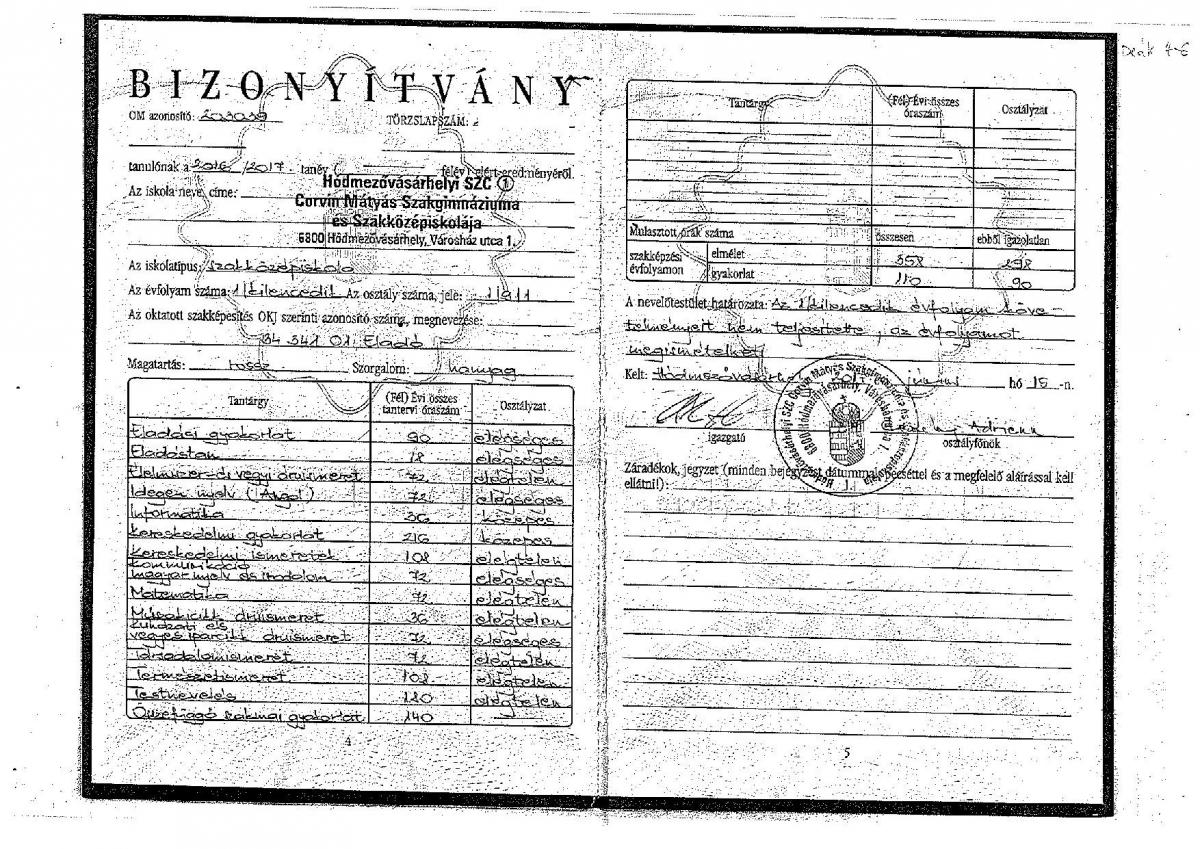 Deák 4-6
BIZONYÍTVÁNY
OM azonosító: 203039 TÖRZSLAPSZÁM:
tanulónak a 2016/2017. tanév ( félév) elért eredményéről.
Az iskola neve, címe:
Hódmezővásárhelyi SZC ①
Corvin Mátyás Szakgimnáziuma
és Szakközépiskolája
6800 Hódmezővásárhely, Városház utca 1.
Az iskolatípus: szakközépiskola
Az évfolyam száma: 1/kilencedik Az osztály száma, jele: 1/911
Az oktatott szakképesítés OKJ szerinti azonosító száma, megnevezése:
34 341 01 Eladó
Magatartás: rossz Szorgalom: hanyag
Tantárgy (Fél) Évi összes tantervi óraszám Osztályzat
Eladási gyakorlat 90 elégséges
Eladástan 18 elégséges
Élelmiszer- és vegyi áruismeret 72 elégtelen
Idegen nyelv (Angol) 72 elégséges
Informatika 36 közepes
Kereskedelmi gyakorlat 216 közepes
Kereskedelmi ismeretek 108 elégtelen
Kommunikáció
magyar nyelv és irodalom 72 elégséges
Matematika 72 elégtelen
Műszaki cikk áruismeret 36 elégtelen
Ruházati és
vegyes iparcikk áruismeret 72 elégséges
Társadalomismeret 72 elégtelen
Természetismeret 108 elégtelen
Testnevelés 180 elégtelen
Összefüggő szakmai gyakorlat 140
4
Tantárgy (Fél) Évi összes óraszám Osztályzat
Mulasztott órák száma összesen ebből igazolatlan
szakképzési évfolyamon elmélet 358 298
gyakorlat 110 90
A nevelőtestület határozata: Az 1/kilencedik évfolyam köve-
telményeit nem teljesítette, az évfolyamot
megismételheti
Kelt: Hódmezővásárhely június hó 15 -n.
Adrienn
igazgató osztályfőnök
Záradékok, jegyzet (minden bejegyzést dátummal, pecséttel és a megfelelő aláírással kell
ellátni!):
5